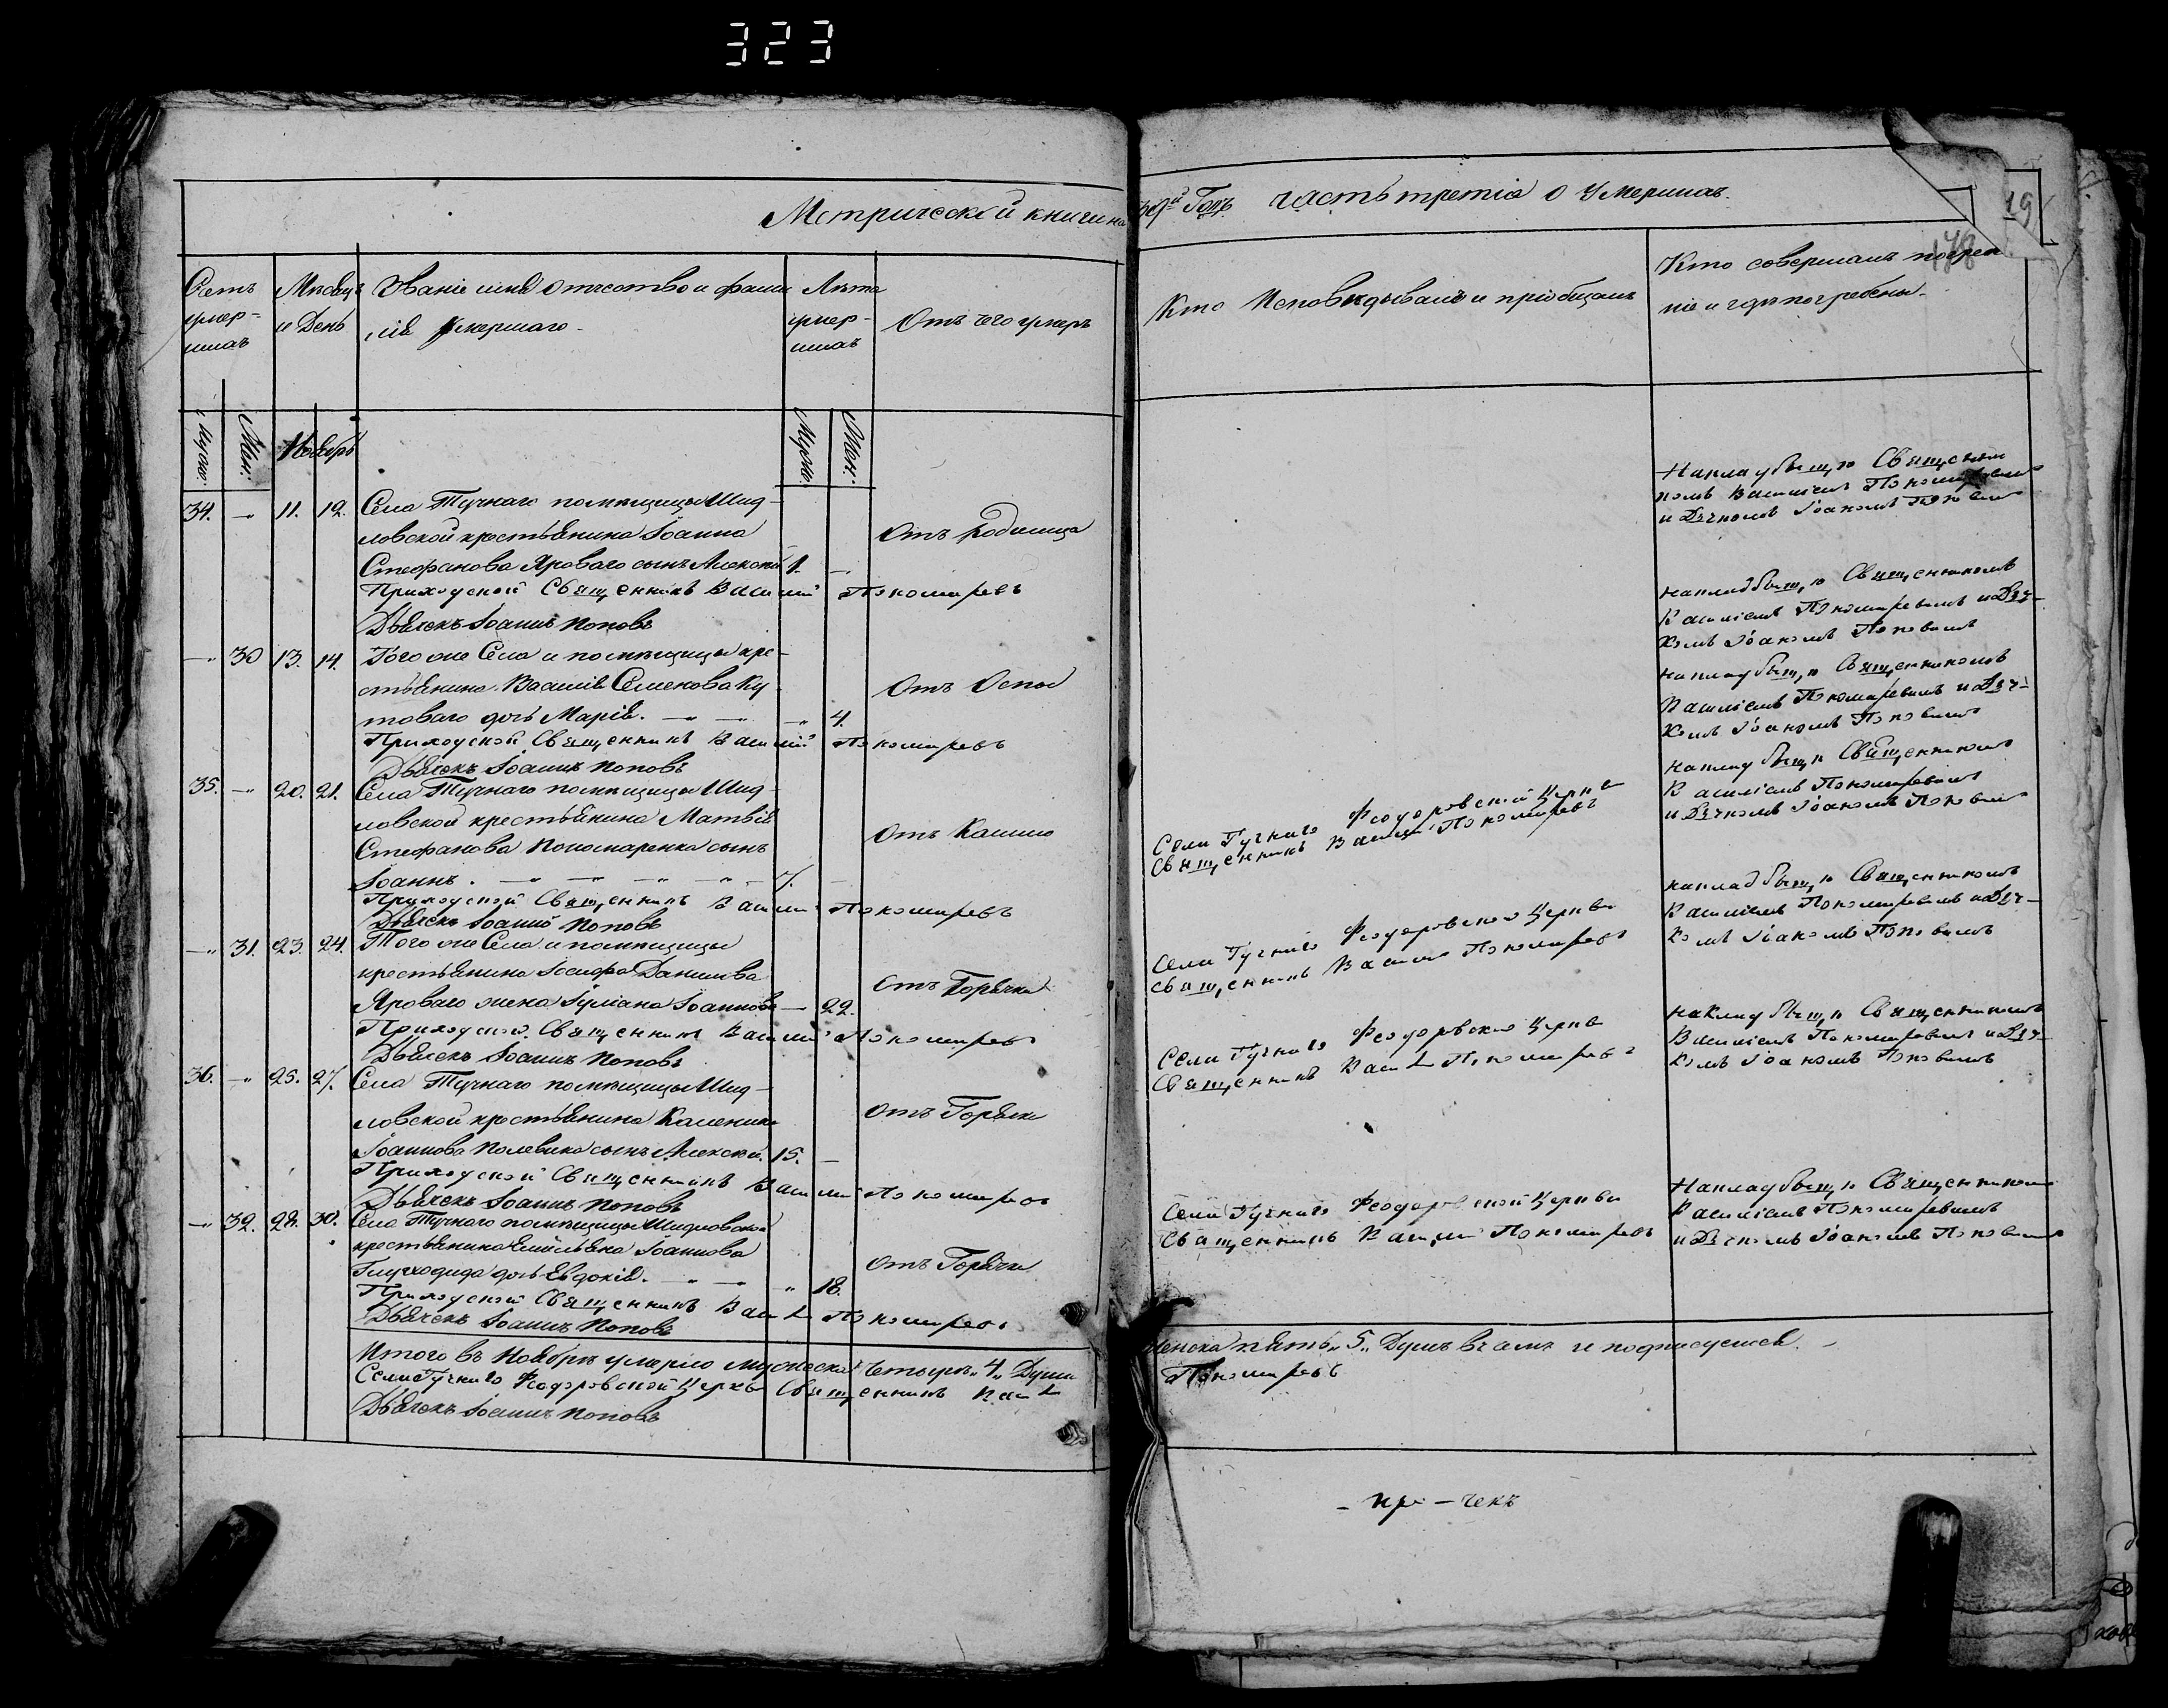 323
Метрической книги на
39й Годъ часть третіа о Умершихъ.
19
178
Счетъ умер- шихъ
Мѣсяцъ и День
Званіе имя Отчество и фами- лія Умершаго.
Лѣта умер- шихъ
Отъ чего умеръ
Кто Исповѣдывалъ и пріобщалъ
Кто совершалъ погребе- ніе и гдѣ погребены.
Мужс. Жен. Ноябрь Мужс. Жен.
34. -„ 11. 12. Села Тучнаго помѣщицы Шид-
ловской крестьянина Іоанна
Отъ Родимца
Стефанова Яроваго сынъ Алексій 1. —
Приходской Священникъ Василій Пономаревъ
Дьячекъ Іоаннъ Поповъ
На кладбищѣ Священни-
комъ Василіемъ Пономаревымъ
и Дячкомъ Іоаномъ Поповымъ
-„ 30 13. 14. Того же Села и помѣщицы кре-
стьянина Василія Семенова Ку-
Отъ Оспы
товаго дочь Марія. — — -„ 4.
Приходской Священникъ Василій Пономаревъ
Дьячекъ Іоаннъ Поповъ
на кладбищѣ Священникомъ
Василіемъ Пономаревымъ и Дяч-
комъ Іоаномъ Поповымъ
35. -„ 20. 21. Села Тучнаго помѣщицы Шид-
ловской крестьянина Матвія
Отъ Кашлю
Стефанова Пономаренка сынъ
Іоаннъ. — — — — — 7. —
Приходской Священникъ Василій Пономаревъ
Дьячекъ Іоаннъ Поповъ
Села Тучнаго Феодоровской Церкви
Священникъ Василій Пономаревъ
на кладбищѣ Священникомъ
Василіемъ Пономаревымъ и Дяч-
комъ Іоаномъ Поповымъ
-„ 31. 23. 24. Того же Села и помѣщицы
крестьянина Іосифа Данилова
Отъ Горячки
Яроваго жена Іуліана Іоаннова — 22.
Приходской Священникъ Василій Пономаревъ
Дьячекъ Іоаннъ Поповъ
Села Тучнаго Феодоровской Церкви
Священникъ Василій Пономаревъ
на кладбищѣ Священникомъ
Василіемъ Пономаревымъ
и Дячкомъ Іоаномъ Поповымъ
36. -„ 25. 27. Села Тучнаго помѣщицы Шид-
ловской крестьянина Каленика
Отъ Горячки
Іоаннова Полевика сынъ Алексій. 15. —
Приходской Священникъ Василій Пономаревъ
Дьячекъ Іоаннъ Поповъ
Села Тучнаго Феодоровской Церкви
Священникъ Васил Пономаревъ
на кладбищѣ Священникомъ
Василіемъ Пономаревымъ и Дяч-
комъ Іоаномъ Поповымъ
-„ 32. 28. 30. Села Тучнаго помѣщицы Шидловской
крестьянина Емельяна Іоаннова
Отъ Горячки
дочь Евдокія. — — „ 18.
Приходской Священникъ Васил Пономаревъ
Дьячекъ Іоаннъ Поповъ
Села Тучнаго Феодоровской Церкви
Священникъ Василій Пономаревъ
На кладбищѣ Священникомъ
Василіемъ Пономаревымъ
и Дячкомъ Іоаномъ Поповымъ
Итого въ Ноябрѣ умерло мужеска Четыри „4„ Души
женска пять „5„ Душъ въ чемъ и подписуемся.
Села Тучнаго Феодоровской Церкви Священникъ Васил
Пономаревъ
Дьячекъ Іоаннъ Поповъ
- чекъ